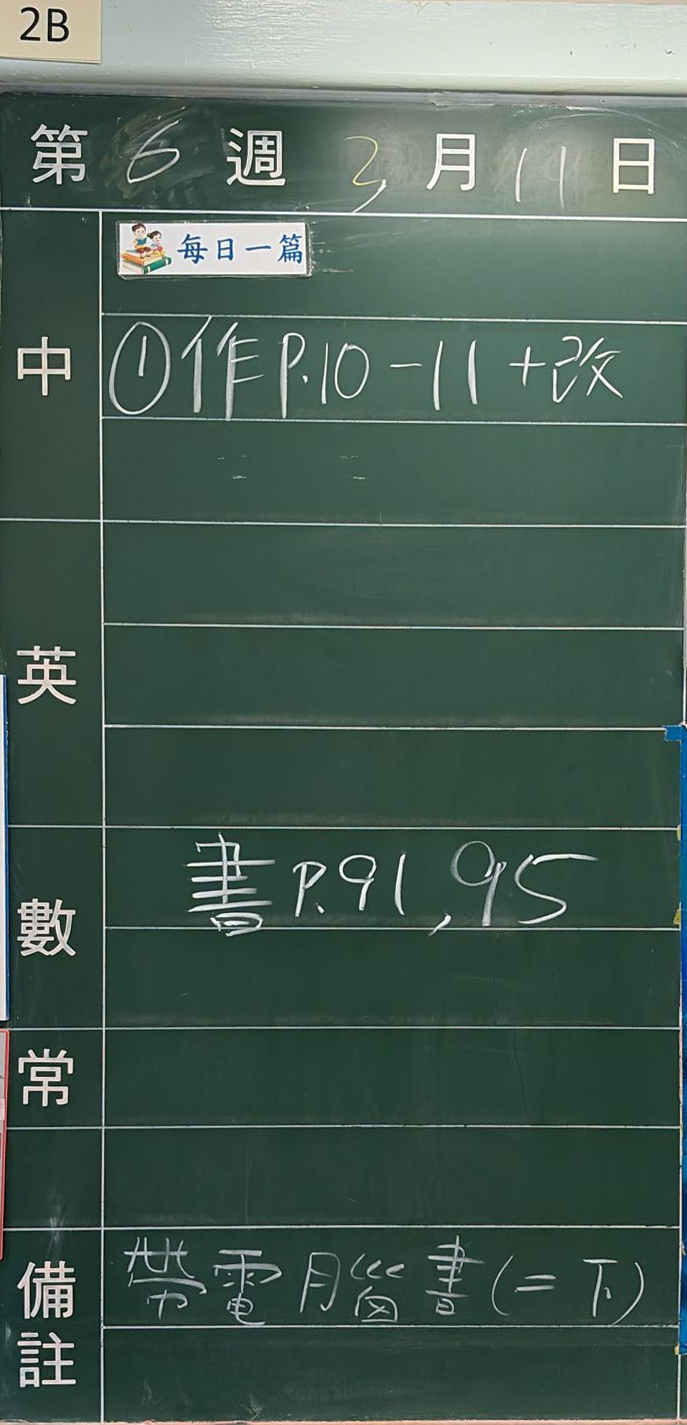 2B
第 6 週 3 月 11 日
每日一篇
中
①作P.10-11+改
英
數
書P.91,95
常
備註
帶電腦書(二下)